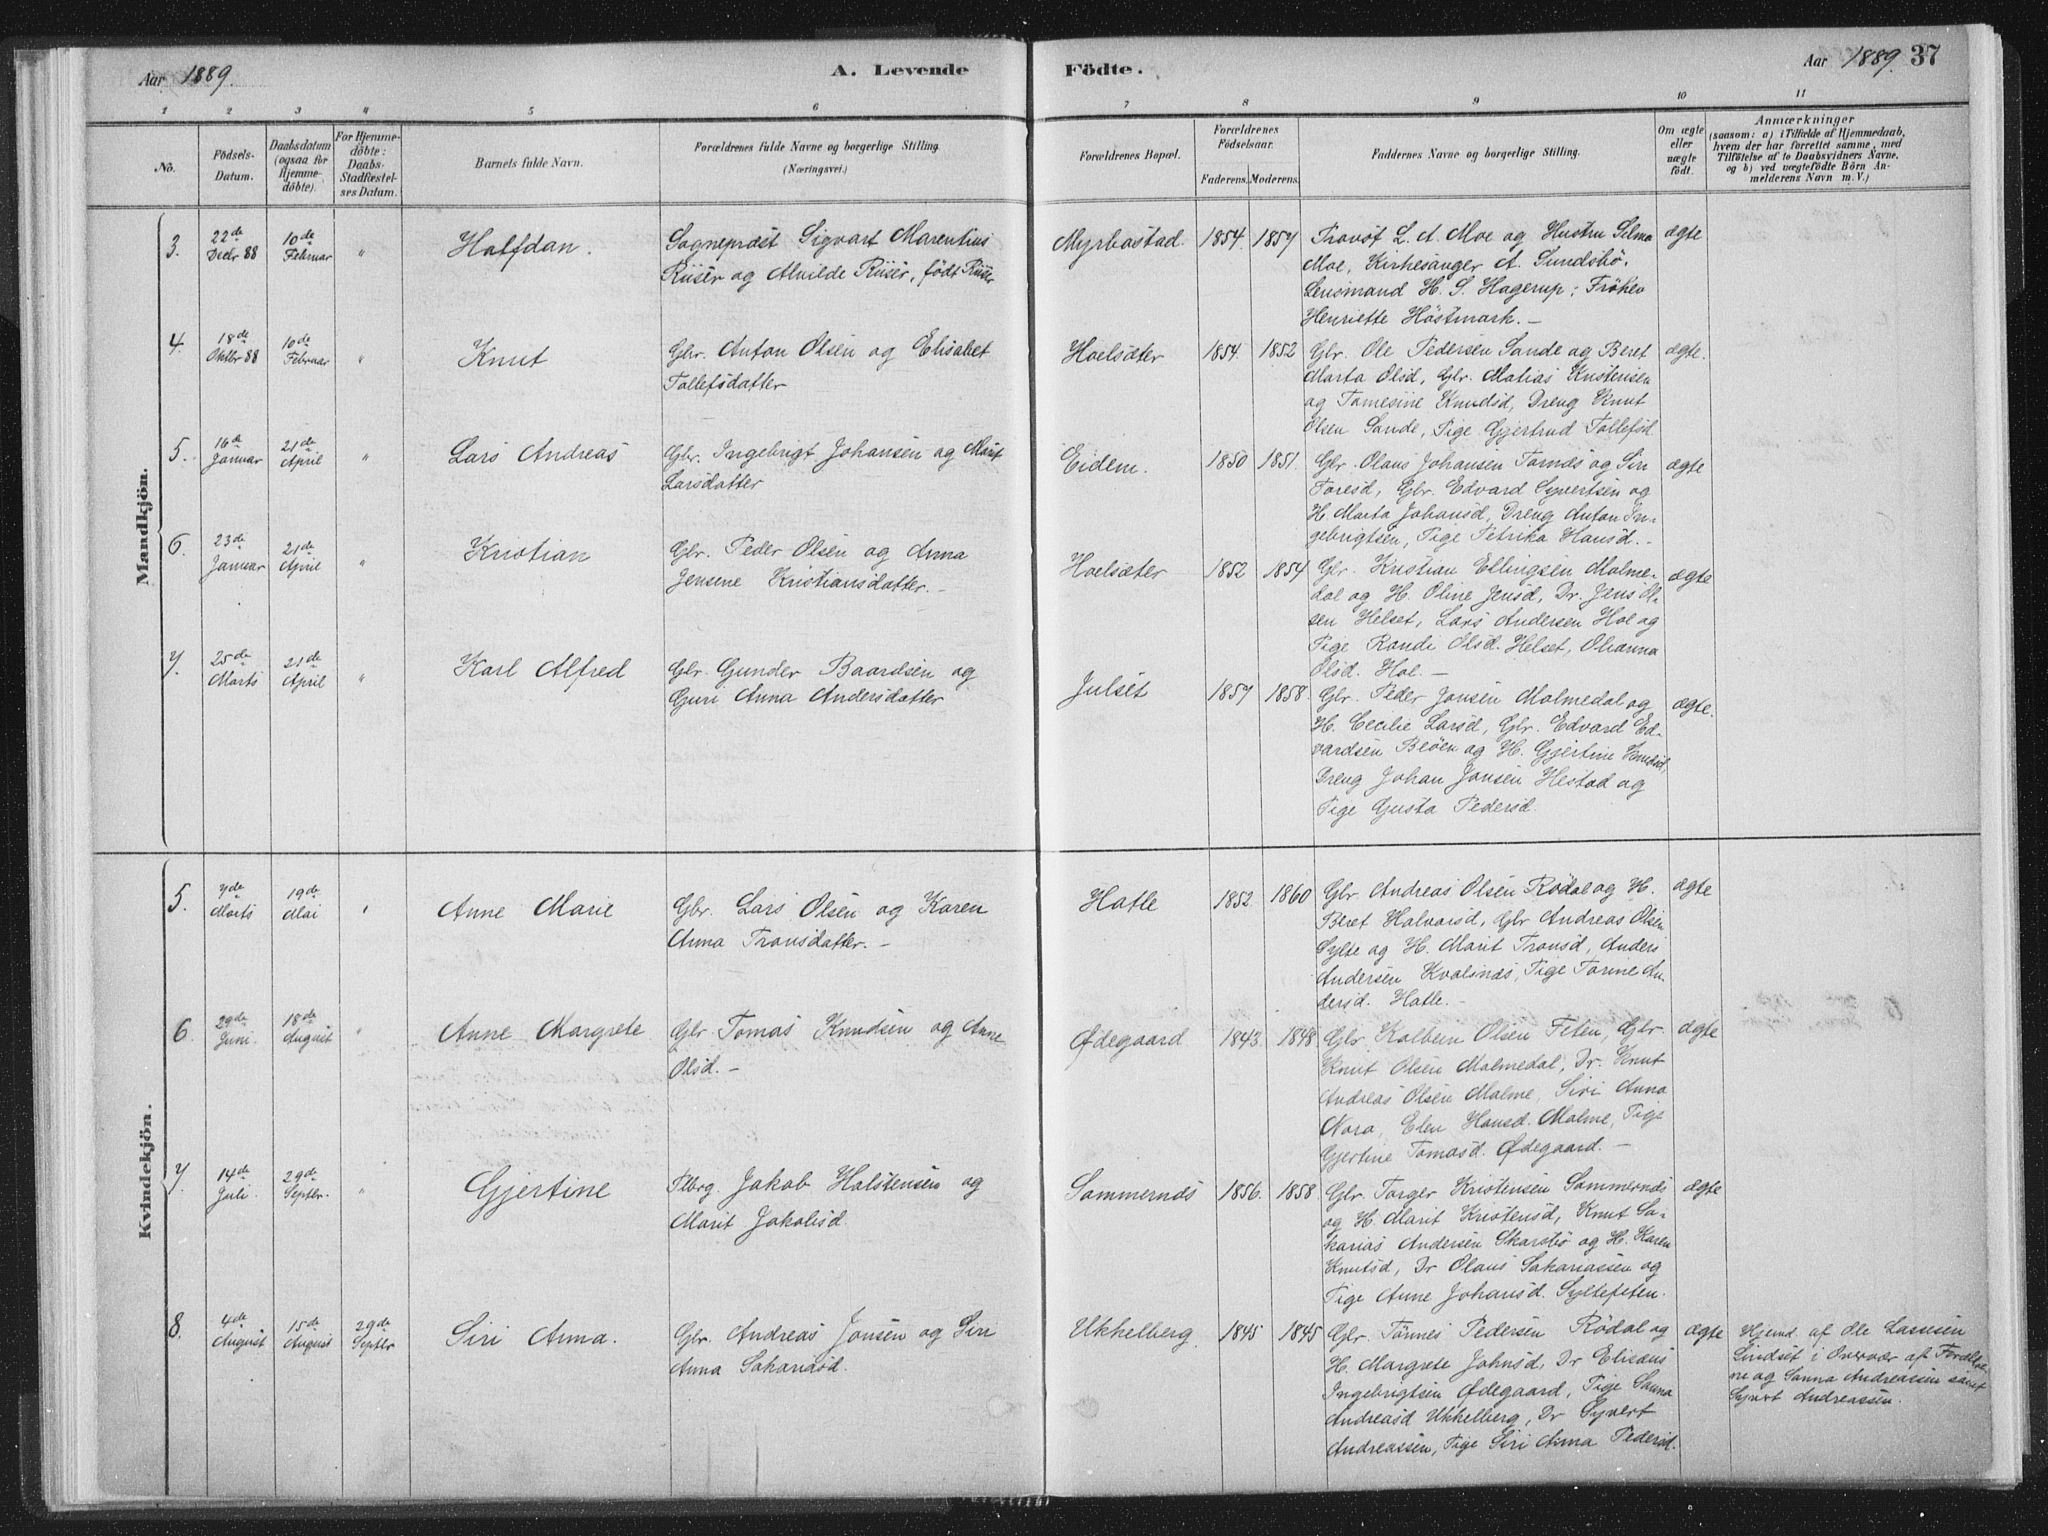 Aar 1889.
A. Levende Fødte.
Aar 1889. 37
1 2 3 4 5 6 7 8 9 10 11
No.
Fødsels-Datum.
Daabsdatum (ogsaa for Hjemmedøbte).
For Hjemmedøbte: Daabs-Stadfæstelses Datum.
Barnets fulde Navn.
Forældrenes fulde Navne og borgerlige Stilling. (Næringsvei.)
Forældrenes Bopæl.
Forældrenes Fødselsaar.
Faderens. Moderens.
Faddernes Navne og borgerlige Stilling.
Om ægte eller uægte født.
Anmærkninger
(saasom: a) i Tilfælde af Hjemmedaab, hvem der har forrettet samme, med Tilføielse af to Daabsvidners Navne, og b) ved uægtefødte Børn Anmelderens Navn m. V.)
Mandkjön.
3. 22de Decbr 88 10de Februar " Halfdan.
Sognepræst Sigvart Marentius
Riisér og Alvilde Riisér, født Riisér
Myrbostad. 1854. 1857
Provst L. A. Moe og Hustru Selma
Moe, Kirkesanger A. Sundsbø.
Lensmand H. S. Hagerup; Frøken
Henriette Høstmark.—
ægte
4. 18de Oktbr 88 10de Februar " Knut
Gbr. Anton Olsen og Elisabet
Tollefsdatter
Hoelsæter 1854. 1852
Gbr. Ole Pedersen Sande og Beret
Marta Olsd, Gbr. Matias Kristensen
og Tomesine Knudsd, Dreng Knut
Olsen Sande, Pige Gjertrud Tollefsd.
ægte.
5. 16de Januar 21de April " Lars Andreas
Gbr. Ingebrigt Johansen og Marit
Larsdatter
Eidem. 1850 1851.
Gbr. Olaus Johansen Tornes og Siri
Toresd, Gbr. Edvard Syvertsen og
H. Marta Johansd, Dreng Anton In-
gebrigtsen, Pige Petrika Hansd.—
ægte
6. 23de Januar 21de April " Kristian
Gbr. Peder Olsen og Anna
Jensene Kristiansdatter.—
Hoelsæter 1852 1854
Gbr. Kristian Ellingsen Malme-
dal og H. Oline Jensd, Dr. Jens Ol-
sen Helset, Lars Andersen Hol og
Pige Randi Olsd. Helset, Olianna
Olsd. Hol.—
ægte
7. 25de Marts 21de April " Karl Alfred
Gbr. Gunder Baardsen og
Guri Anna Andersdatter
Julset 1857 1858.
Gbr. Peder Jonsen Malmedal og
H. Cecilie Larsd, Gbr. Edvard Ed-
vardsen Beøen og H. Gjertine Knudsd,
Dreng Johan Jonsen Hestad og
Pige Gusta Pedersd.
ægte.
Kvindekjön.
5. 7de Marts 19de Mai " Anne Marie
Gbr. Lars Olsen og Karen
Anna Tronsdatter.—
Hatle 1852. 1860
Gbr. Andreas Olsen Rødal og H.
Beret Halvorsd, Gbr Andreas Olsen
Sylte og H. Marit Tronsd, Anders
Andersen Kvalsnes, Pige Torine An-
dersd. Hatle.—
ægte
6. 29de Juni. 18de August " Anne Margrete
Gbr Tomas Knudsen og Anne
Olsd.—
Ødegaard 1843. 1848.
Gbr Kolbein Olsen Feten, Gbr
Knut Olsen Malmedal, Dr. Knut
Andreas Olsen Malme, Siri Anna
Nora, Elen Hansd. Malme, Pige
Gjertine Tomasd. Ødegaard.—
ægte
7. 14de Juli. 29de Septbr. " Gjertine
Flbrg. Jakob Halstensen og
Marit Jakobsd.
Sommernes 1856. 1858.
Gbr. Torger Kristensen Sommernes
og H. Marit Kristensd, Knut Sa-
karias Andersen Skarsbø og H. Karen
Knutsd, Dr Olaus Sakariassen og
Pige Anne Johansd. Syltefeten.
ægte
8. 4de August 15de August 29de Septbr Siri Anna.
Gbr. Andreas Jonsen og Siri
Anna Sakariasd.
Ukkelberg 1845 1845
Gbr. Tønnes Pedersen Rødal og
H. Margrete Johnsd, Dr Eliseus
Ingebrigtsen Ødegaard, Pige Sanna
Andreasd Ukkelberg, Dr Syvert
Andreassen, Pige Siri Anna Pedersd.
ægte
Hjemd. af Ole Lassesen
Lindset i Overvær af Forældre-
ne og Sanna Andreassen samt
Syvert Andreassen.